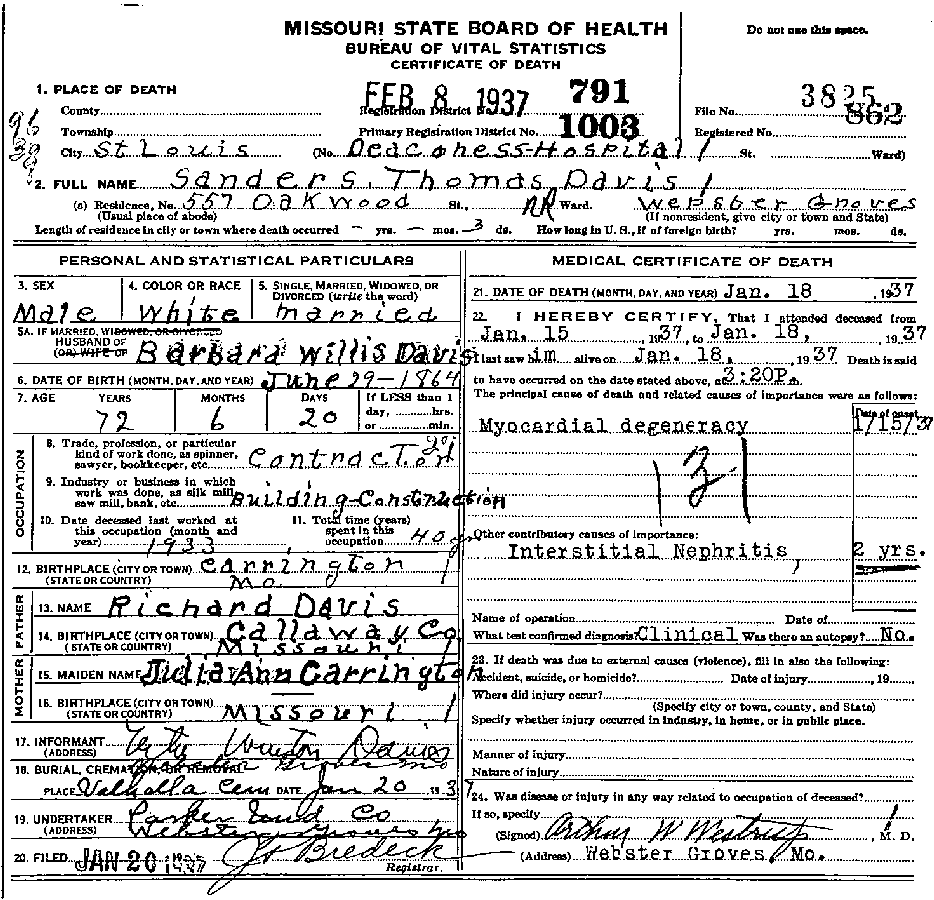 MISSOURI STATE BOARD OF HEALTH
BUREAU OF VITAL STATISTICS
CERTIFICATE OF DEATH
Do not use this space.
1. PLACE OF DEATH
FEB 8 1937 791
County Registration District No.
File No. 3825
Township Primary Registration District No. 1003 Registered No. 862
City St Louis (No. Deaconess-Hospital St. Ward)
2. FULL NAME Sanders, Thomas Davis
(a) Residence, No. 557 Oakwood St., NR Ward. Webster Groves
(Usual place of abode) (If nonresident, give city or town and State)
Length of residence in city or town where death occurred - yrs. - mos. 3 ds. How long in U. S., if of foreign birth? yrs. mos. ds.
PERSONAL AND STATISTICAL PARTICULARS
3. SEX 4. COLOR OR RACE 5. SINGLE, MARRIED, WIDOWED, OR
DIVORCED (write the word)
Male White Married
5A. IF MARRIED, WIDOWED, OR DIVORCED
HUSBAND OF
(OR) WIFE OF Barbara Willis Davis
6. DATE OF BIRTH (MONTH, DAY, AND YEAR) June 29-1864
7. AGE YEARS MONTHS DAYS If LESS than 1
day, hrs.
72 6 20 or min.
OCCUPATION
8. Trade, profession, or particular
kind of work done, as spinner,
sawyer, bookkeeper, etc. Contractor
9. Industry or business in which
work was done, as silk mill,
saw mill, bank, etc. Building-Construction
10. Date deceased last worked at
this occupation (month and
year) 1933
11. Total time (years)
spent in this
occupation 40
12. BIRTHPLACE (CITY OR TOWN) Carrington
(STATE OR COUNTRY) Mo.
FATHER
13. NAME Richard Davis
14. BIRTHPLACE (CITY OR TOWN) Callaway Co
(STATE OR COUNTRY) Missouri
MOTHER
15. MAIDEN NAME Julia Ann Carrington
16. BIRTHPLACE (CITY OR TOWN)
(STATE OR COUNTRY) Missouri
17. INFORMANT Davis
(ADDRESS) Webster Groves Mo
18. BURIAL, CREMATION, OR REMOVAL
PLACE Valhalla Cem DATE Jan 20 1937
19. UNDERTAKER Parker Und Co
(ADDRESS) Webster Groves Mo
20. FILED JAN 20 1937 Bredeck
Registrar.
MEDICAL CERTIFICATE OF DEATH
21. DATE OF DEATH (MONTH, DAY, AND YEAR) Jan. 18 , 1937
22. I HEREBY CERTIFY, That I attended deceased from
Jan. 15 , 1937, to Jan. 18, , 1937
I last saw im alive on Jan. 18, , 1937 Death is said
to have occurred on the date stated above, at 3:20P.
The principal cause of death and related causes of importance were as follows:
Date of onset
Myocardial degeneracy 1/15/37
131
Other contributory causes of importance:
Interstitial Nephritis, 2 yrs.
Name of operation Date of
What test confirmed diagnosis? Clinical Was there an autopsy? No.
23. If death was due to external causes (violence), fill in also the following:
Accident, suicide, or homicide? Date of injury , 19
Where did injury occur?
(Specify city or town, county, and State)
Specify whether injury occurred in industry, in home, or in public place.
Manner of injury
Nature of injury
24. Was disease or injury in any way related to occupation of deceased?
If so, specify
(Signed) Arthur W Westrup , M. D.
(Address) Webster Groves, Mo.